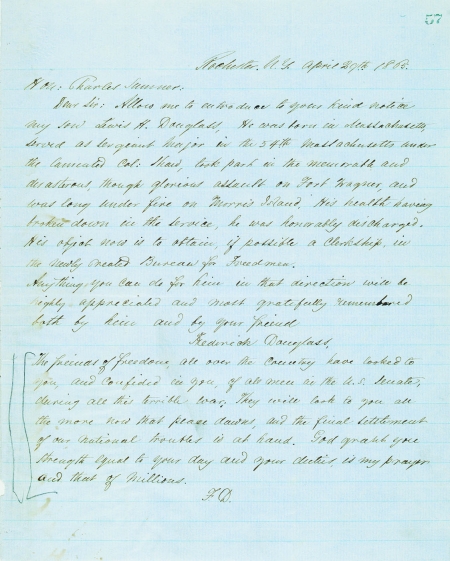 57
Rochester. N.Y. April 29th 1865.
Hon: Charles Sumner.
Dear Sir: Allow me to introduce to your kind notice
my son Lewis H. Douglass, He was born in Massachusetts,
served as sergeant major in the 54th Massachusetts under
the lamented Col. Shaw, took part in the memorable and
disasterous, though glorious assault on Fort Wagner, and
was long under fire on Morris Island. His health having
broken down in the service, he was honorably discharged.
His object now is to obtain, if possible a Clerkship, in
the newly created Bureau for Freedmen.
Anything you can do for him in that direction will be
highly appreciated and most gratefully remembered
both by him and by your friend
Frederick Douglass,
The friends of freedom, all over the Country have looked to
you, and confided in you, of all men in the U.S. Senate,
during all this terrible war. They will look to you all
the more now that peace dawns, and the final settlement
of our national troubles is at hand. God grant you
strength equal to your day and your duties, is my prayer
and that of millions.
F.D.